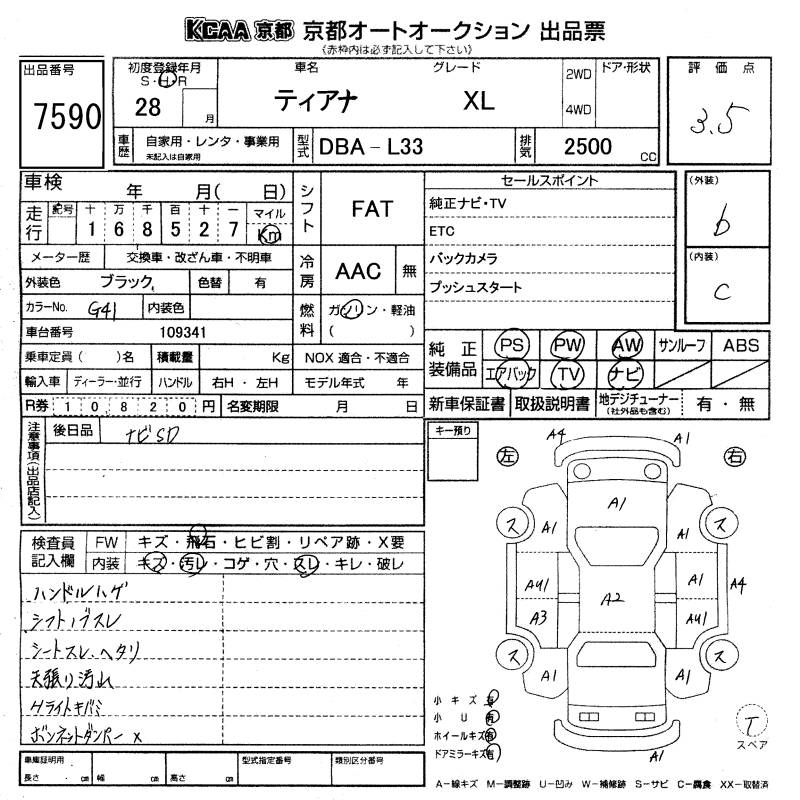 KCAA 京都 京都オートオークション 出品票
《赤枠内は必ず記入して下さい》
出品番号
7590
初度登録年月
S・H・R
28 月
車名
ティアナ
グレード
XL
2WD
4WD
ドア・形状
評価点
3.5
車歴
自家用・レンタ・事業用
未記入は自家用
型式
DBA－L33
排気
2500 CC
車検 年 月( 日)
走行
記号 十 万 千 百 十 一 マイル
1 6 8 5 2 7 Km
メーター歴 交換車・改ざん車・不明車
外装色 ブラック 色替 有
カラーNo. G41 内装色
車台番号 109341
乗車定員( )名 積載量 Kg
輸入車 ディーラー・並行 ハンドル 右H・左H
R券 10820円 名変期限 月 日
シフト
FAT
冷房
AAC 無
燃料
ガソリン・軽油
( )
NOX 適合・不適合
モデル年式 年
セールスポイント
純正ナビ・TV
ETC
バックカメラ
プッシュスタート
(外装)
b
(内装)
c
純正装備品
PS PW AW サンルーフ ABS
エアバック TV ナビ
新車保証書 取扱説明書 地デジチューナー
(社外品も含む)
有・無
注意事項(出品店記入)
後日品 ナビSD
キー預り
左 右
A4 A1
A1
ス ス
A1 A1
AU1 A1 A4
A2
A3 AU1
ス ス
A1 A1
A1
検査員記入欄
FW キズ・飛石・ヒビ割・リペア跡・X要
内装 キズ・汚レ・コゲ・穴・スレ・キレ・破レ
ハンドルハゲ
シフトノブスレ
シートスレ、ヘタリ
天張り汚レ
Hライトキバミ
ボンネットダンパー x
小キズ 有
小U 有
ホイールキズ 有
ドアミラーキズ 有
T
スペア
車庫証明用
長さ . cm 幅 cm 高さ . cm
型式指定番号 類別区分番号
A－線キズ M－調整跡 U－凹み W－補修跡 S－サビ C－腐食 XX－取替済